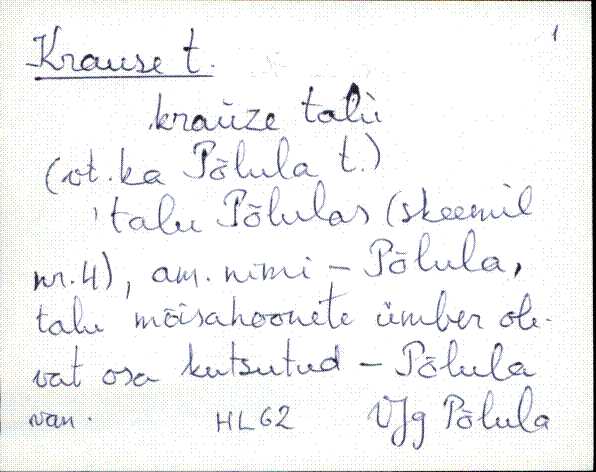 1
Krause t.
krauze talu
(vt. ka Põlula t.)
'talu Põlulas (skeemil
nr. 4), am. nimi – Põlula,
talu mõisahoonete ümber ole-
vat osa kutsutud – Põlula
van. HL62 VJg Põlula